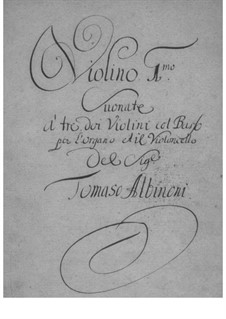 Violino 1mo
Suonate
a' tre doi Violini col Basso
per l'organo ed il Violoncello
Del Sigr
Tomaso Albinoni